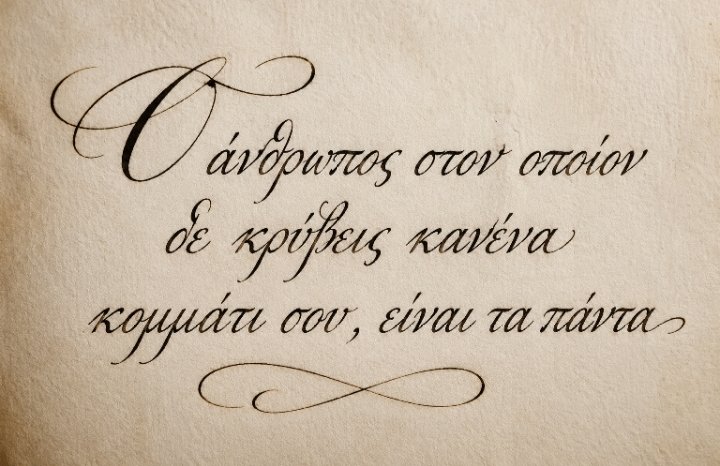 Ο άνθρωπος στον οποίον
δε κρύβεις κανένα
κομμάτι σου, είναι τα πάντα